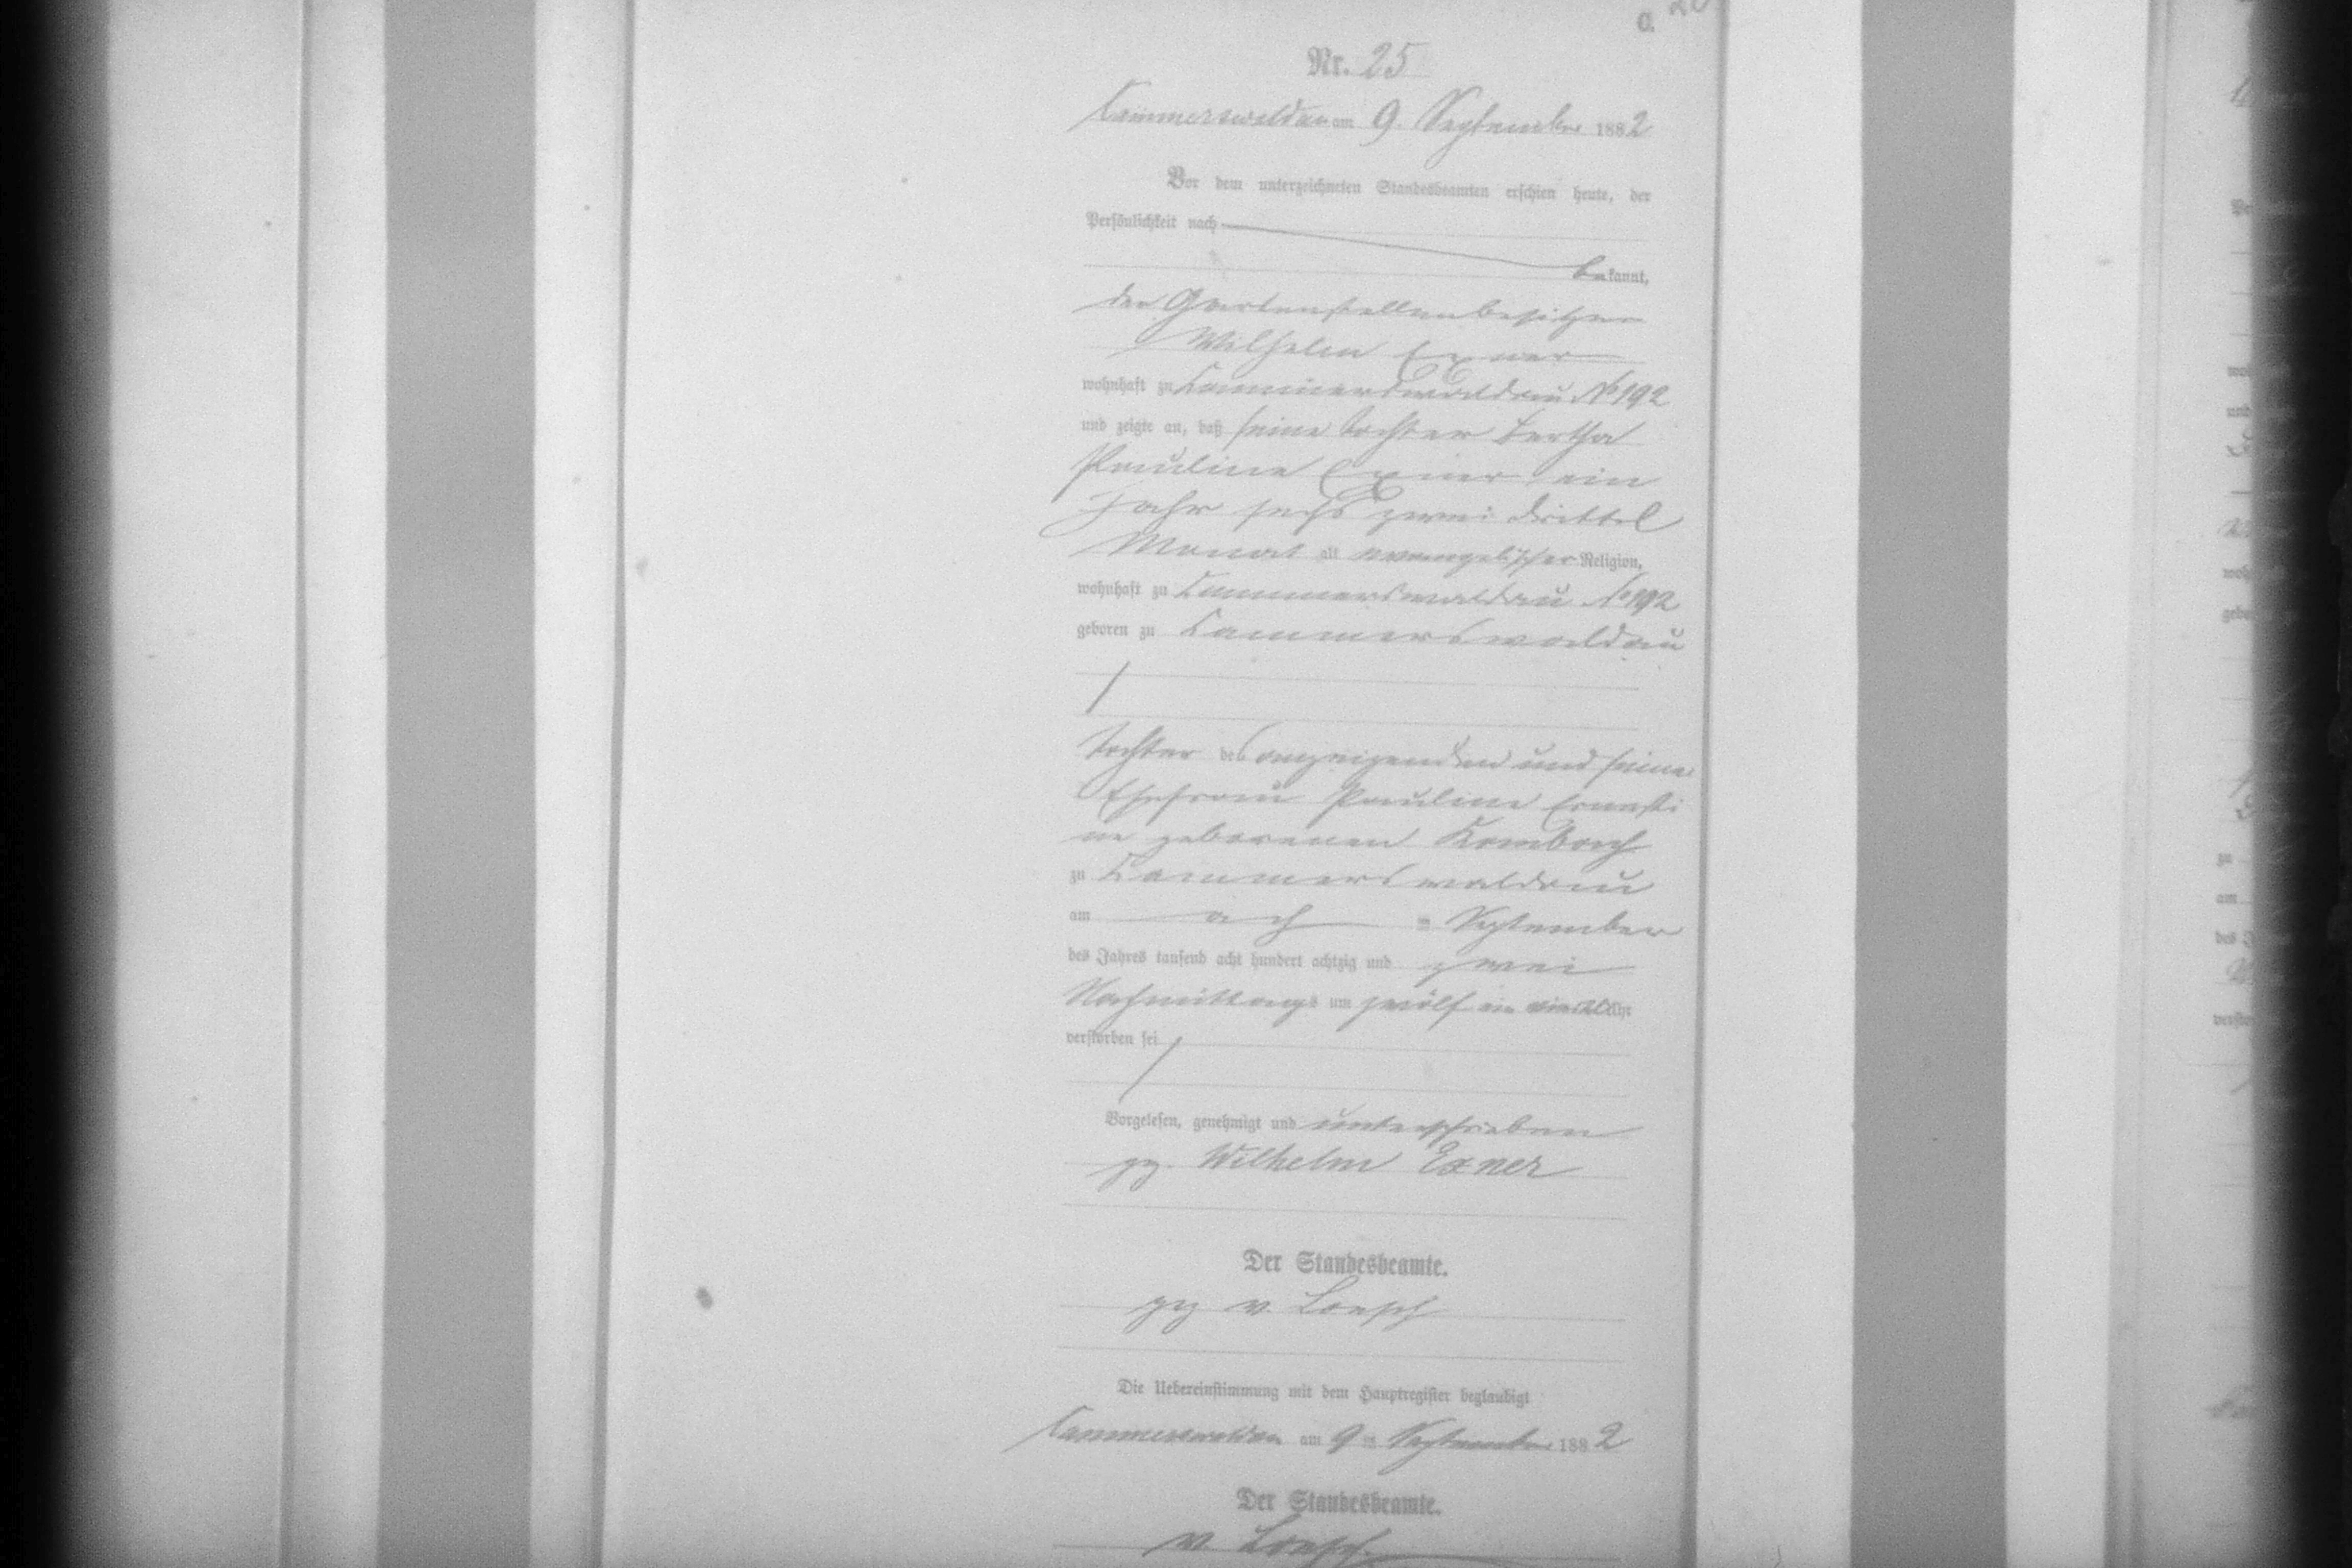 C.
Nr. 25
Cammerswaldau am 9. September 1882
Vor dem unterzeichneten Standesbeamten erschien heute, der
Persönlichkeit nach
bekannt,
der Gartenstellenbesitzer
Wilhelm Exner
wohnhaft zu Cammerswaldau No 192
und zeigte an, daß seine Tochter Bertha
Pauline Exner, ein
Jahr sechs zwei drittel
Monat alt evangelischer Religion,
wohnhaft zu Cammerswaldau No 192
geboren zu Cammerswaldau
Tochter des anzeigenden und seiner
Ehefrau Pauline Ernesti
ne geborenen
zu Cammerswaldau
am ach ten September
des Jahres tausend acht hundert achtzig und zwei
Nachmittags um zwölf ein viertel Uhr
verstorben sei
Vorgelesen, genehmigt und unterschrieben
gz. Wilhelm Exner
Der Standesbeamte.
gz v. Loesch
Die Uebereinstimmung mit dem Hauptregister beglaubigt
Cammerswaldau am 9 ten September 1882
Der Standesbeamte.
v. Loesch